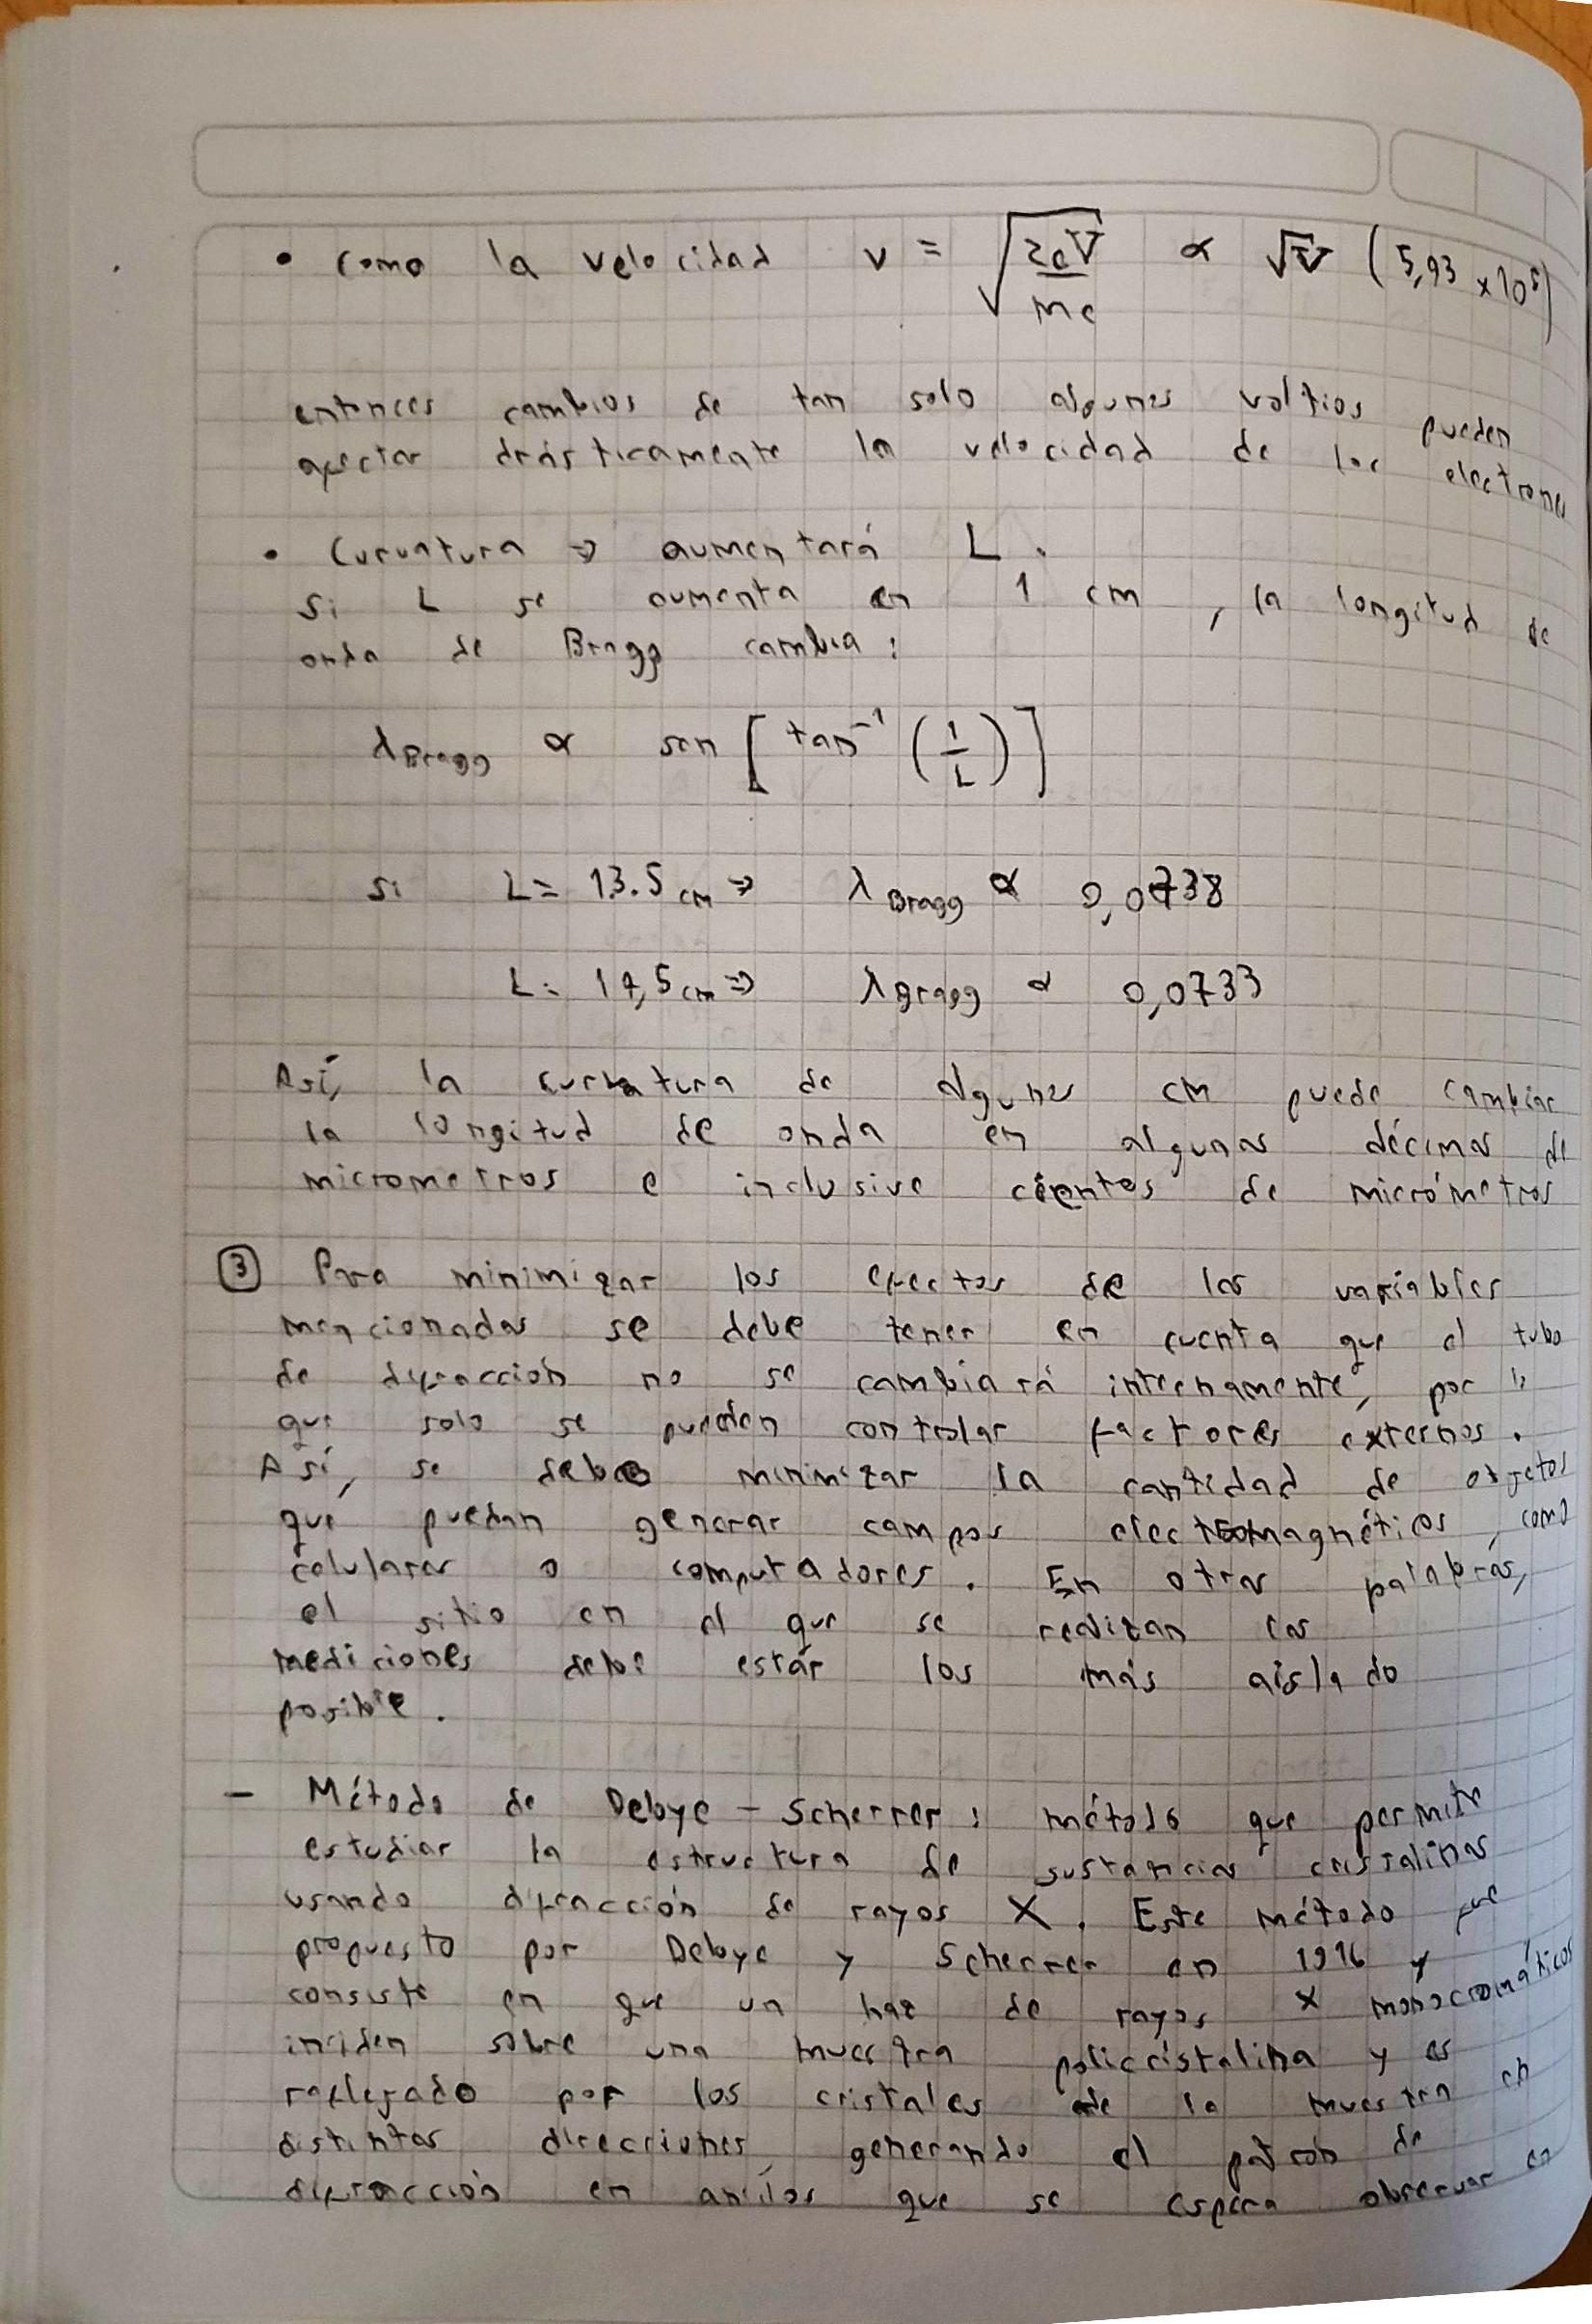 • Como la velocidad v = √(2eV/me) ∝ √V (5,93 x 10⁵)
entonces cambios de tan solo algunos voltios pueden
afectar drásticamente la velocidad de los electrones
• Curvatura ⇒ aumentará L.
Si L se aumenta en 1 cm, la longitud de
onda de Bragg cambia:
λBragg ∝ sen [tan⁻¹ (1/L)]
Si L = 13.5 cm ⇒ λBragg ∝ 0,0738
L = 14,5 cm ⇒ λBragg ∝ 0,0733
Así, la curvatura de algunos cm puede cambiar
la longitud de onda en algunas décimas de
micrometros e inclusive cientos de micrómetros
③ Para minimizar los efectos de las variables
mencionadas se debe tener en cuenta que el tubo
de difracción no se cambiará internamente, por lo
que solo se pueden controlar factores externos.
Así, se debe minimizar la cantidad de objetos
que puedan generar campos electromagnéticos, como
celulares o computadores. En otras palabras,
el sitio en el que se realizan las
mediciones debe estar los más aislado
posible.
– Método de Debye – Scherrer: método que permite
estudiar la estructura de sustancias cristalinas
usando difracción de rayos X. Este método fue
propuesto por Debye y Scherrer en 1916 y
consiste en que un haz de rayos X monocromáticos
inciden sobre una muestra policristalina y es
reflejado por los cristales de la muestra en
distintas direcciones, generando el patrón de
difracción en anillos que se espera observar en